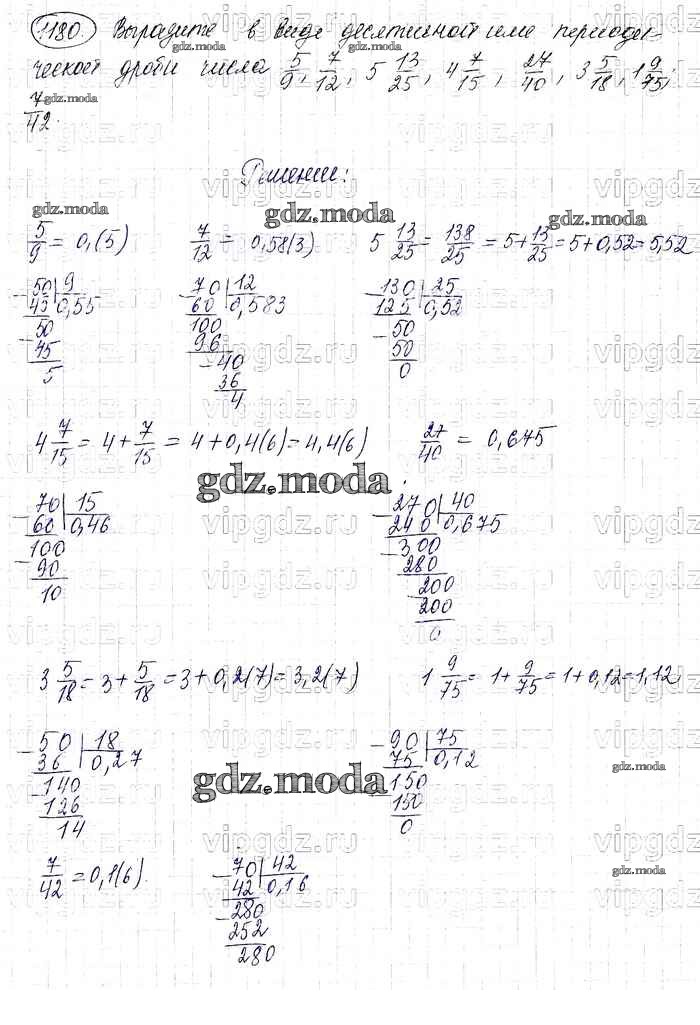 1180. Выразите в виде десятичной или периоди-
ческой дроби числа 5/9, 7/12, 5 13/25, 4 7/15, 27/40, 3 5/18, 1 9/75,
7/42.
Решение:
5/9 = 0,(5) 7/12 = 0,58(3) 5 13/25 = 138/25 = 5+13/25 = 5+0,52=5,52
50 | 9 70 | 12 130 | 25
45 0,55 60 0,583 125 0,52
50 100 50
45 96 50
5 40 0
36
4
4 7/15 = 4 + 7/15 = 4+0,4(6)=4,4(6) 27/40 = 0,675
70 | 15 270 | 40
60 0,46 240 0,675
100 300
90 280
10 200
200
0
3 5/18 = 3+5/18 = 3+0,2(7)=3,2(7) 1 9/75 = 1+9/75 = 1+0,12=1,12
50 | 18 90 | 75
36 0,27 75 0,12
140 150
126 150
14 0
7/42 = 0,1(6). 70 | 42
42 0,16
280
252
280
gdz.moda
vipgdz.ru